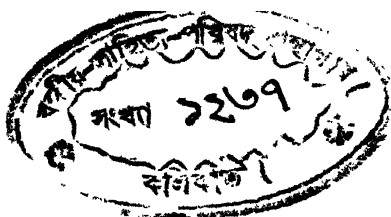 বঙ্গীয়-সাহিত্য-পরিষদ গ্রন্থাগার।
সংখ্যা ১২৩৭
কলিকাতা।